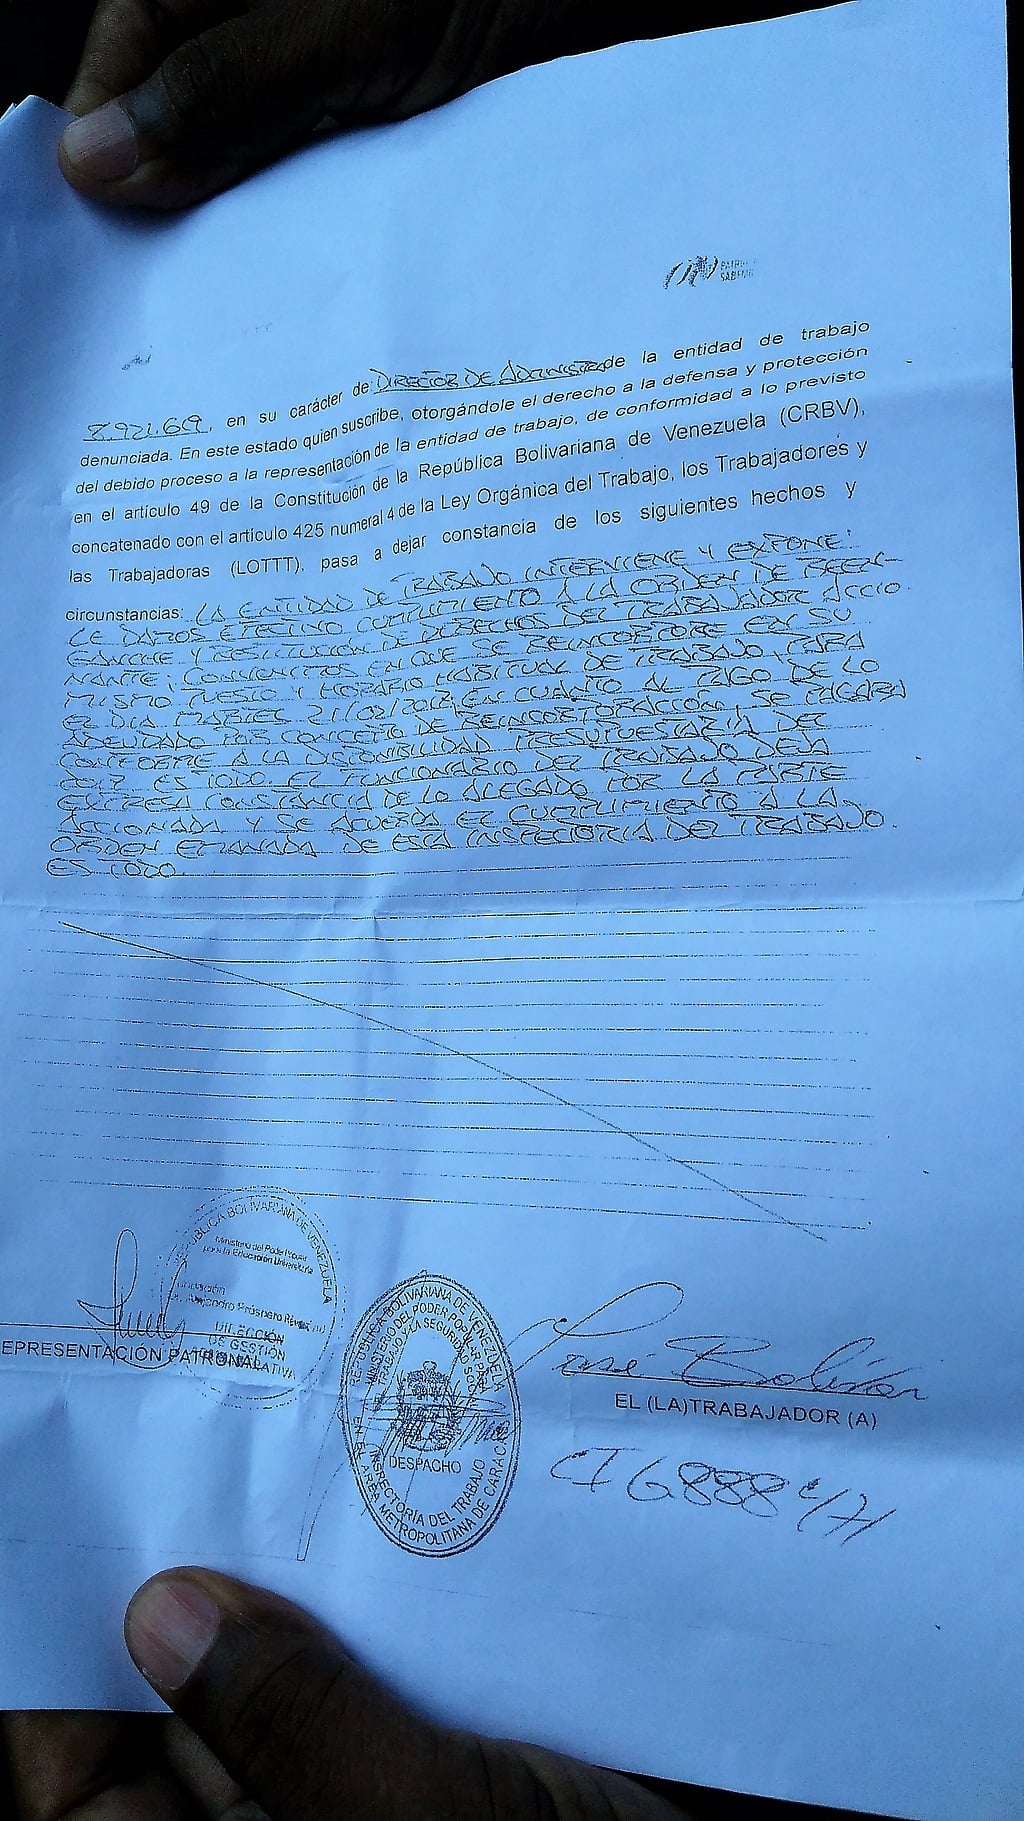 PATRIA
8.921.619, en su carácter de: DIRECTOR DE ADMINISTRA de la entidad de trabajo
denunciada. En este estado quien suscribe, otorgándole el derecho a la defensa y protección
del debido proceso a la representación de la entidad de trabajo, de conformidad a lo previsto
en el artículo 49 de la Constitución de la República Bolivariana de Venezuela (CRBV),
concatenado con el artículo 425 numeral 4 de la Ley Orgánica del Trabajo, los Trabajadores y
las Trabajadoras (LOTTT), pasa a dejar constancia de los siguientes hechos y
circunstancias: LA ENTIDAD DE TRABAJO INTERVIENE Y EXPONE:
LE DAMOS EFECTIVO CUMPLIMIENTO A LA ORDEN DE REEN-
GANCHE Y RESTITUCIÓN DE DERECHOS DEL TRABAJADOR ACCIO-
NANTE; CONVENIMOS EN QUE SE REINCORPORE EN SU
MISMO PUESTO Y HORARIO HABITUAL DE TRABAJO, PARA
EL DIA MARTES 21/02/2017, EN CUANTO AL PAGO DE LO
ADEUDADO POR CONCEPTO DE REINCORPORACIÓN, SE PAGARA
CONFORME A LA DISPONIBILIDAD PRESUPUESTARIA DEL
2017. ES TODO. EL FUNCIONARIO DEL TRABAJO DEJA
EXPRESA CONSTANCIA DE LO ALEGADO POR LA PARTE
ACCIONADA Y SE ACUERDA EL CUMPLIMIENTO A LA
ORDEN EMANADA DE ESTA INSPECTORIA DEL TRABAJO.
ES TODO.
REPÚBLICA BOLIVARIANA DE VENEZUELA
Ministerio del Poder Popular
para la Educación Universitaria
Fundación
Dr. Alejandro Próspero Reverend
DIRECCIÓN
DE GESTIÓN
ADMINISTRATIVA
EPRESENTACIÓN PATRONAL
REPÚBLICA BOLIVARIANA DE VENEZUELA
MINISTERIO DEL PODER POPULAR PARA
EL TRABAJO Y LA SEGURIDAD SOCIAL
DESPACHO
INSPECTORÍA DEL TRABAJO
EN EL ÁREA METROPOLITANA DE CARACAS
José Bolívar
EL (LA)TRABAJADOR (A)
CI 6.888